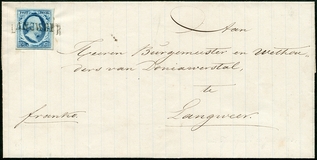 LANGWEER
Aan
Heeren Burgemeester en Wethou-
ders van Doniawerstal,
te
Langweer.
franko.